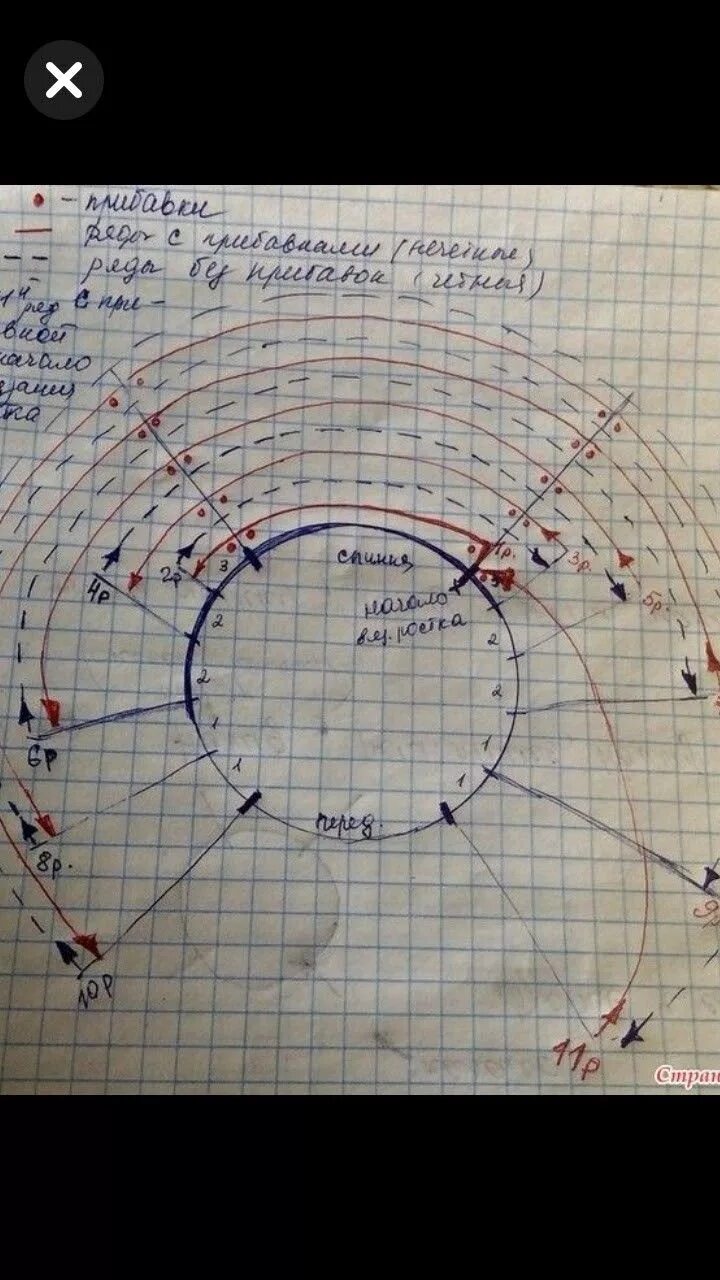 - прибавки
ряды с прибавками (нечетные)
ряды без прибавок (четные)
1й ряд с при-
начало
спинка
1р.
3р.
5р.
начало
вяз. ростка
2р
4р
3
3
2
2
2
2
1
1
1
1
перед.
6р
8р.
9р
10р
11р
Стран